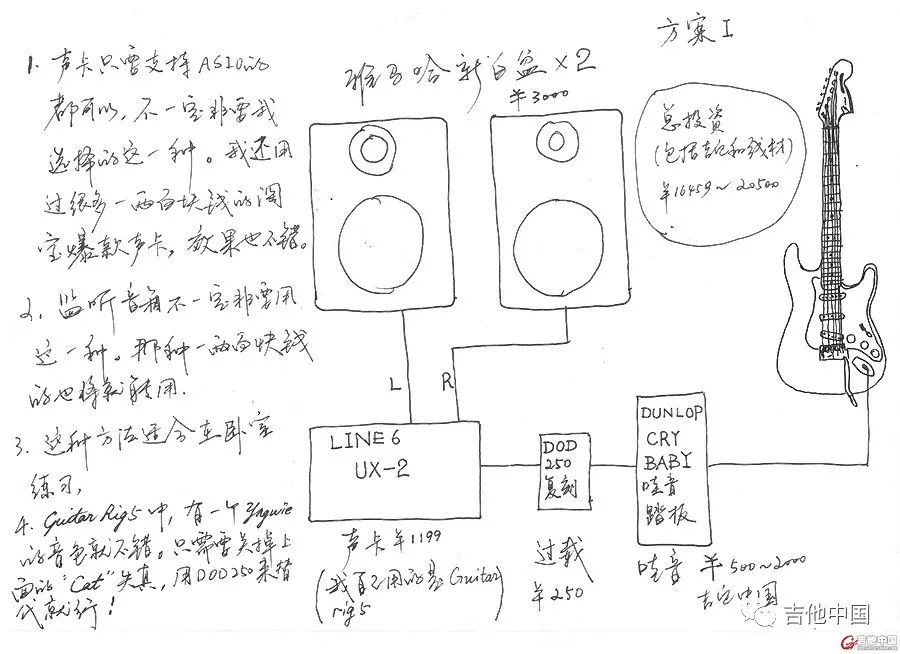 方案 I
1. 声卡只需支持ASIO的
都可以,不一定非要我
选择的这一种。我还用
过很多一两百块钱的淘
宝爆款声卡,效果也不错。
2. 监听音箱不一定非要用
这一种。那种一两百块钱
的也将就能用.
3. 这种方法适合在卧室
练习,
4. Guitar Rig5中,有一个Yngwie
的音色就不错。只需要关掉上
面的"Cat"失真,用DOD250来替
代就行!
雅马哈新白盆×2
¥3000
总投资
(包括吉他和线材)
¥16459~20500
L
R
LINE 6
UX-2
DOD
250
复刻
DUNLOP
CRY
BABY
哇音
踏板
声卡¥1199
(我自己用的是Guitar
rig5
过载
¥250
哇音 ¥500~2000
吉他中国
吉他中国
吉他中国